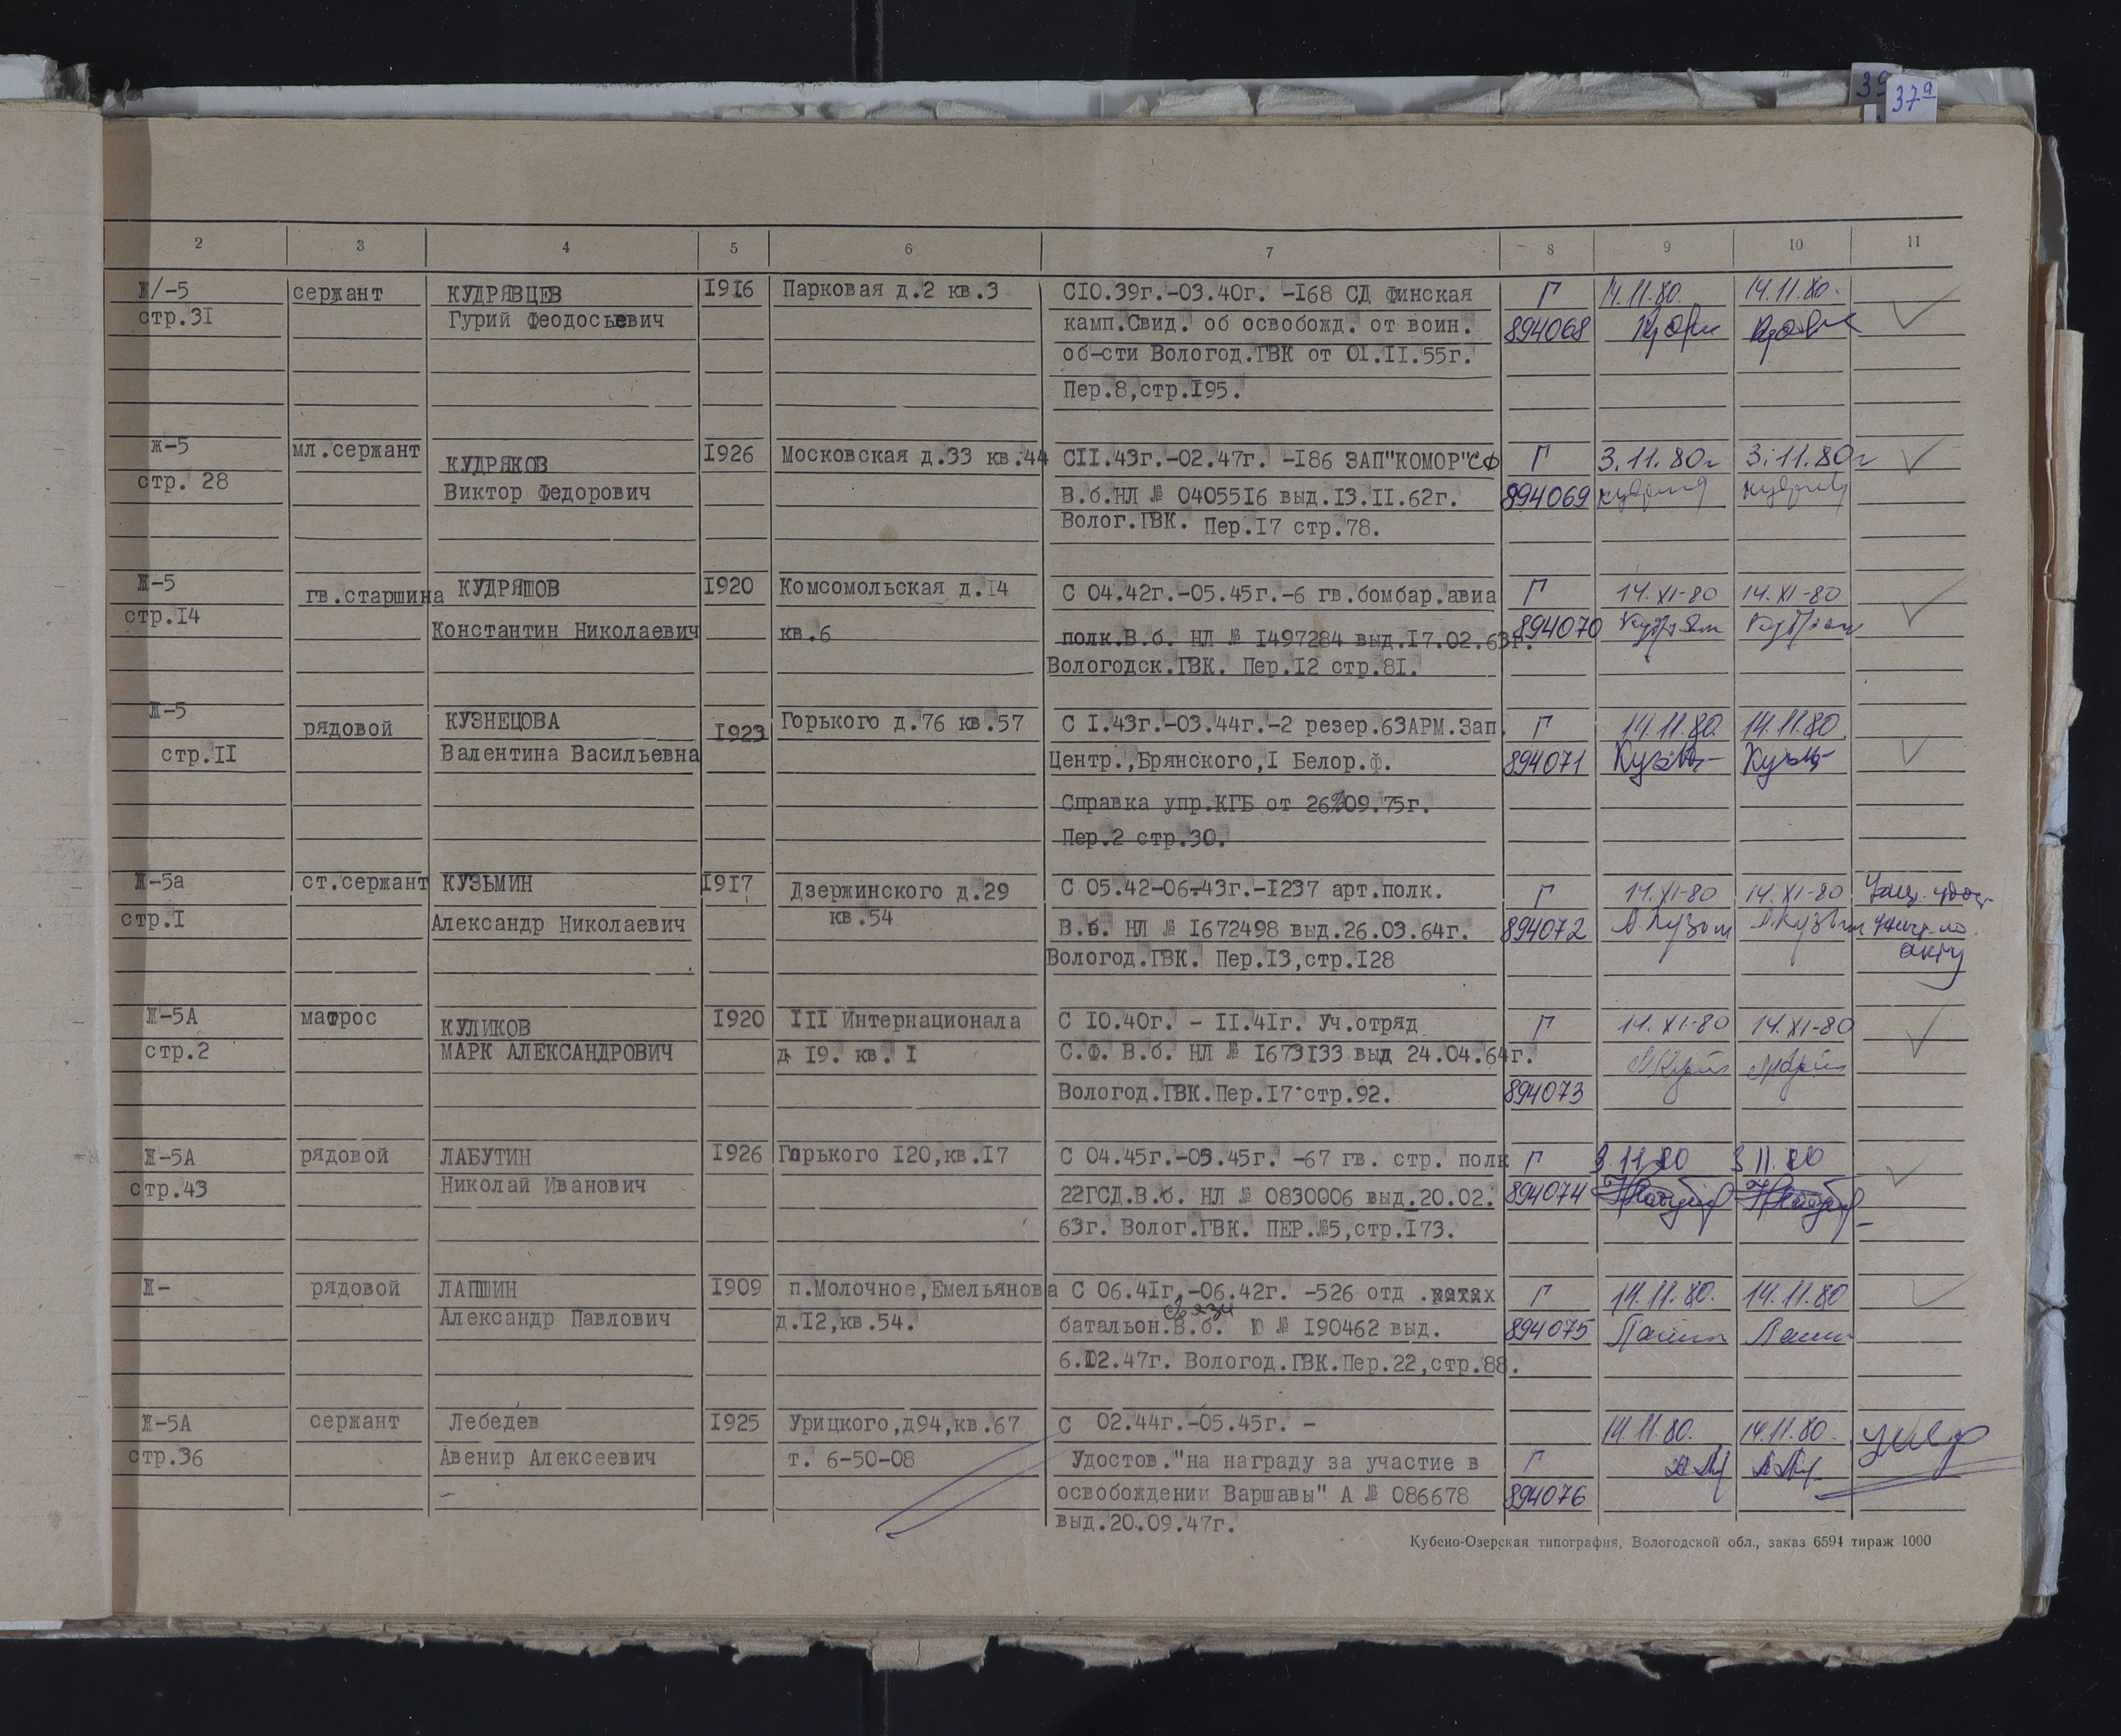 39
37а
2 3 4 5 6 7 8 9 10 11
Ж/-5 сержант КУДРЯВЦЕВ 1916 Парковая д.2 кв.3 С10.39г.-03.40г. -168 СД Финская Г 14.11.80. 14.11.80.
стр.31 Гурий Феодосьевич камп.Свид. об освобожд. от воин. 894068
об-сти Вологод.ГВК от 01.11.55г.
Пер.8,стр.195.
Ж-5 мл.сержант КУДРЯКОВ 1926 Московская д.33 кв.44 С11.43г.-02.47г. -186 ЗАП"КОМОР"СФ Г 3.11.80г 3.11.80г
стр. 28 Виктор Федорович В.б.НЛ № 0405516 выд.13.11.62г. 894069
Волог.ГВК. Пер.17 стр.78.
Ж-5 гв.старшина КУДРЯШОВ 1920 Комсомольская д.14 С 04.42г.-05.45г.-6 гв.бомбар.авиа Г 14.XI-80 14.XI-80
стр.14 Константин Николаевич кв.6 полк.В.б. НЛ № 1497284 выд.17.02.63г. 894070
Вологодск.ГВК. Пер.12 стр.81.
Ж-5 рядовой КУЗНЕЦОВА 1923 Горького д.76 кв.57 С 1.43г.-03.44г.-2 резер.63АРМ.Зап. Г 14.11.80. 14.11.80.
стр.11 Валентина Васильевна Центр.,Брянского,1 Белор.ф. 894071
Справка упр.КГБ от 26%09.75г.
Пер.2 стр.30.
Ж-5а ст.сержант КУЗЬМИН 1917 Дзержинского д.29 С 05.42-06-43г.-1237 арт.полк. Г 14.XI-80 14.XI-80
стр.1 Александр Николаевич кв.54 В.б. НЛ № 1672498 выд.26.03.64г. 894072 А.Кузьм А.Кузьм
Вологод.ГВК. Пер.13,стр.128 акту
Ж-5А матрос КУЛИКОВ 1920 III Интернационала С 10.40г. - 11.41г. Уч.отряд Г 14.XI-80 14.XI-80
стр.2 МАРК АЛЕКСАНДРОВИЧ д 19. кв. 1 С.Ф. В.б. НЛ № 1673133 выд 24.04.64г.
Вологод.ГВК.Пер.17 стр.92. 894073
Ж-5А рядовой ЛАБУТИН 1926 Горького 120,кв.17 С 04.45г.-05.45г. -67 гв. стр. полк Г 3.11.80 3.11.80
стр.43 Николай Иванович 22ГСД.В.б. НЛ № 0830006 выд.20.02. 894074
63г. Волог.ГВК. ПЕР.№5,стр.173.
Ж- рядовой ЛАПШИН 1909 п.Молочное,Емельянова С 06.41г.-06.42г. -526 отд . Г 14.11.80. 14.11.80
Александр Павлович д.12,кв.54. связи батальон.В.б. Ю № 190462 выд. 894075
6.12.47г. Вологод.ГВК.Пер.22,стр.88.
Ж-5А сержант Лебедев 1925 Урицкого,д94,кв.67 С 02.44г.-05.45г. - 14.11.80. 14.11.80.
стр.36 Авенир Алексеевич т. 6-50-08 Удостов."на награду за участие в Г
освобождении Варшавы" А № 086678 894076
выд.20.09.47г.
Кубено-Озерская типография, Вологодской обл., заказ 6594 тираж 1000